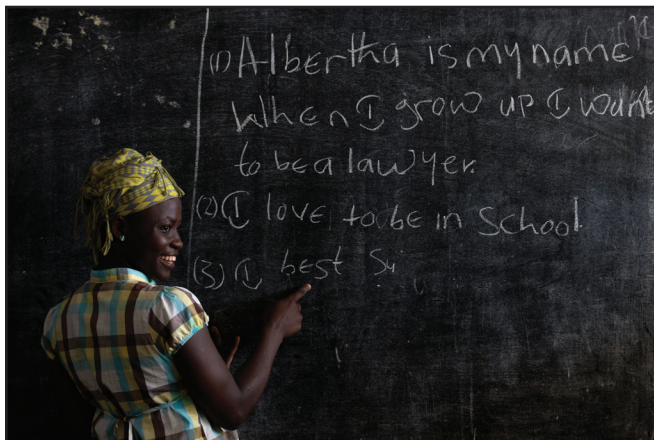 (1) Albertha is my name
When I grow up I want
to be a lawyer.
(2) I love to be in School
(3) I best Su